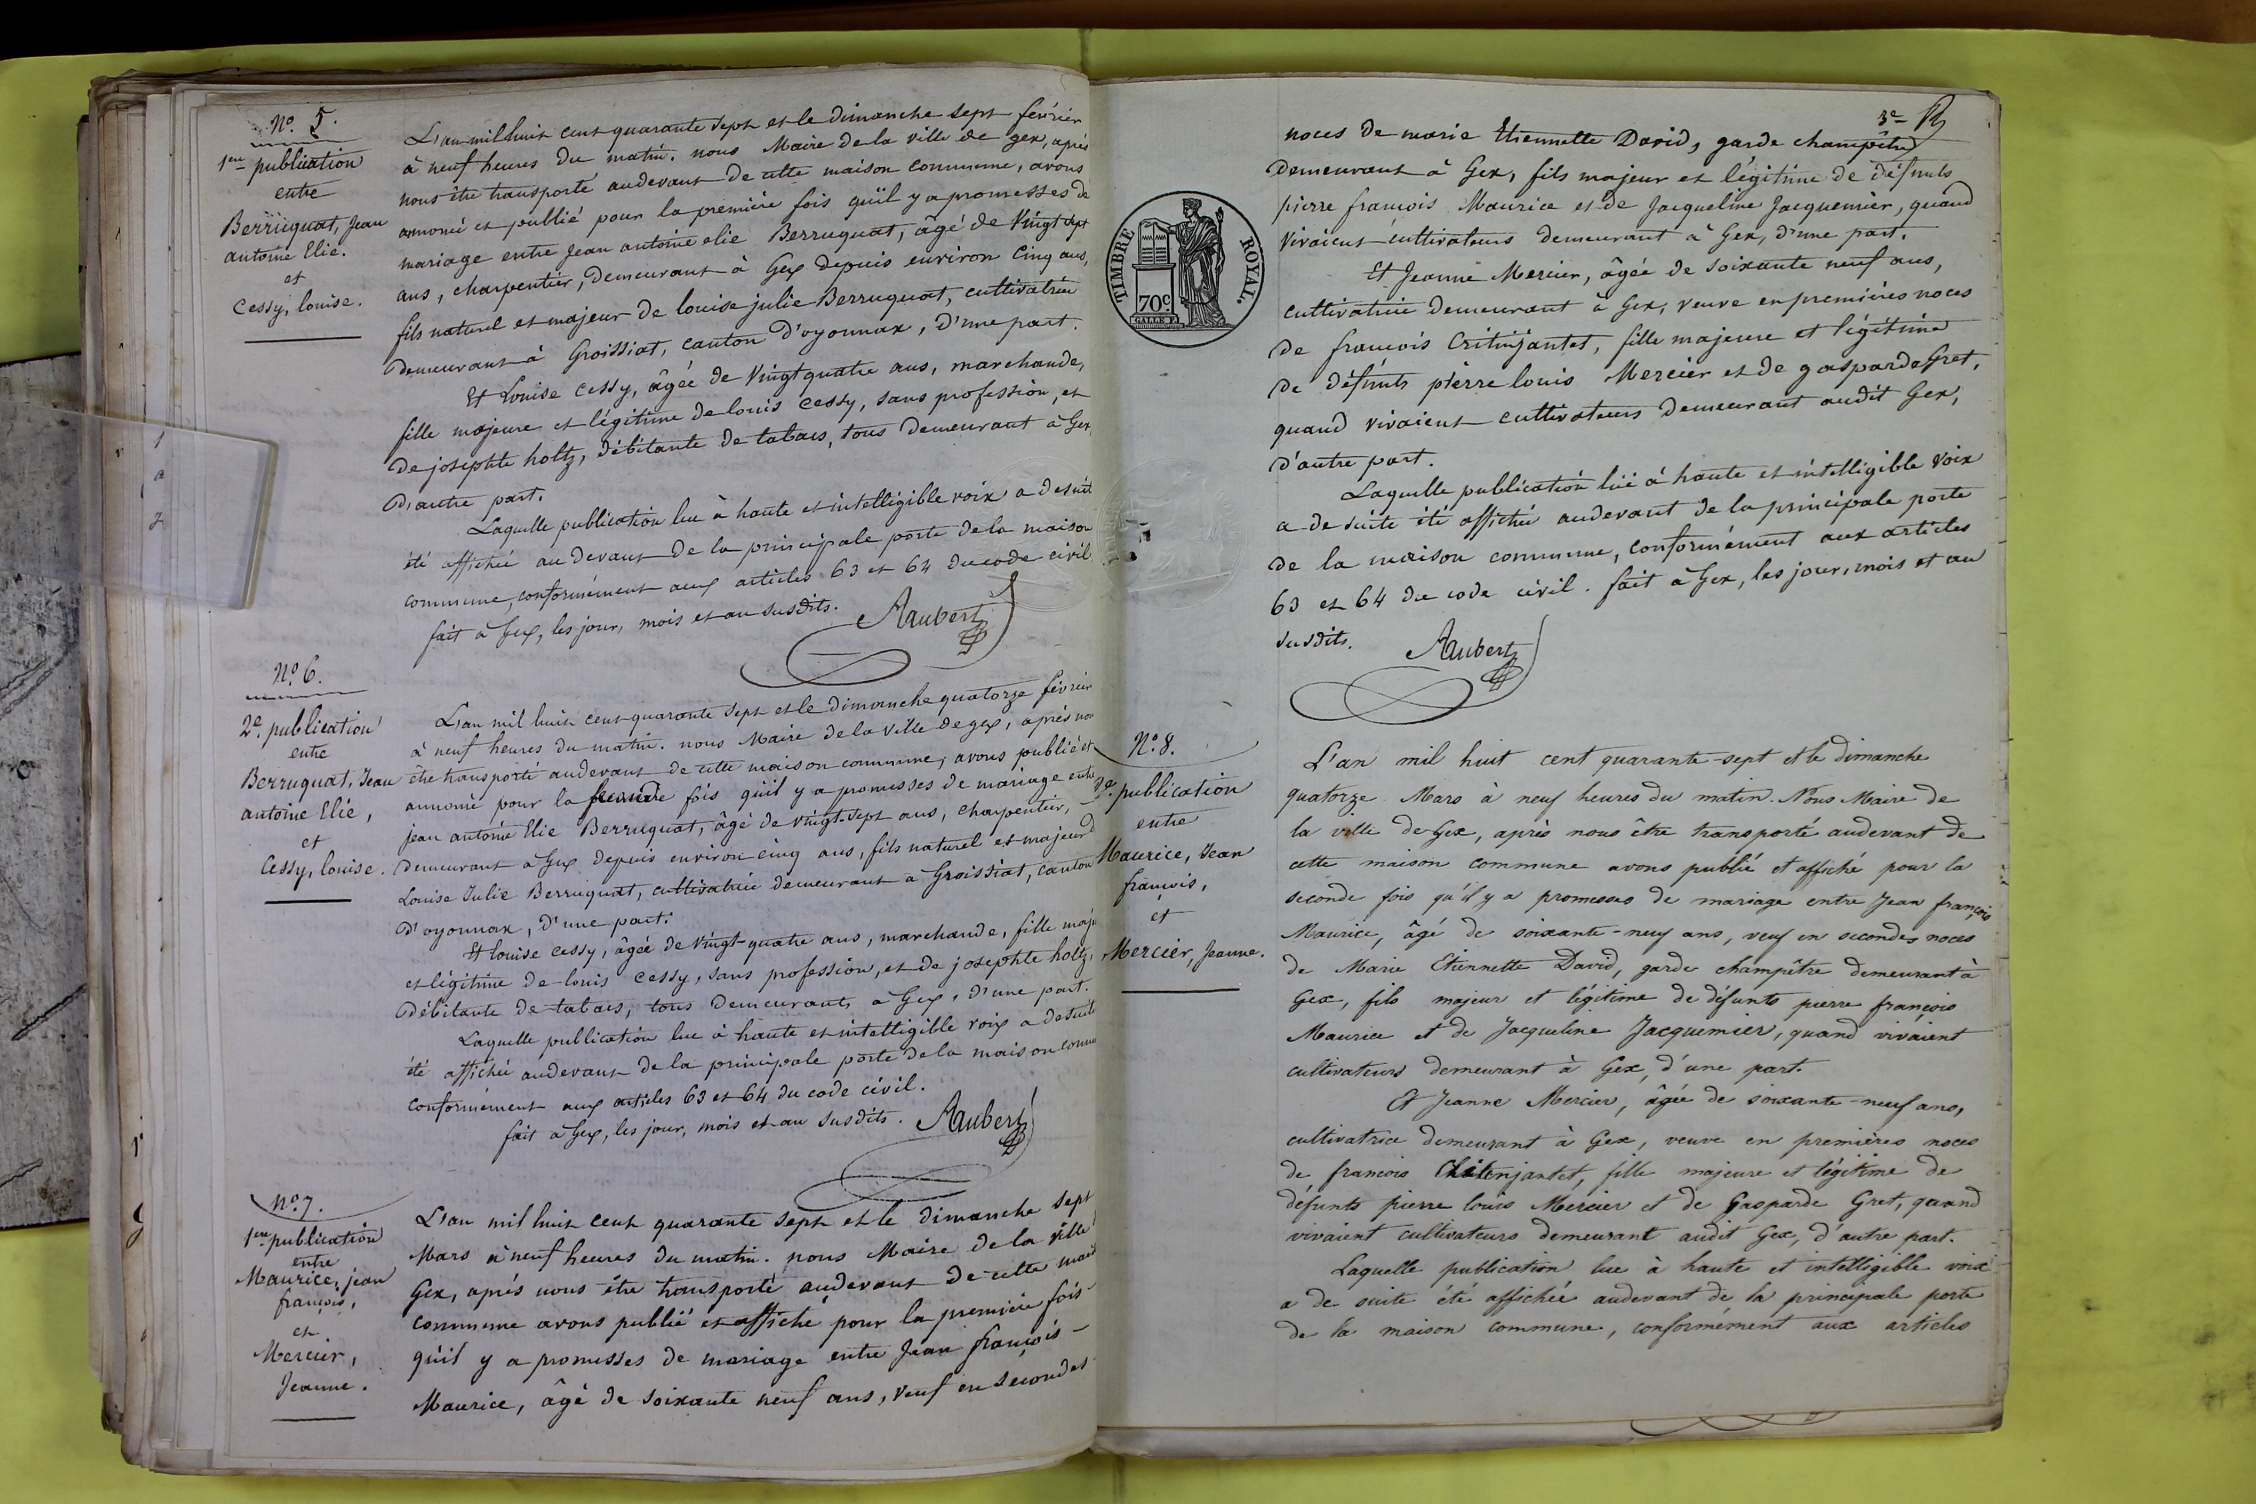 N.º 5.
1ere publication
entre
Berruquat, Jean
antoine Elie.
et
Cessy, louise.
L'an mil huit cent quarante sept et le dimanche sept février
à neuf heures du matin. nous Maire de la ville de gex, après
nous être transporté audevant de cette maison commune, avons
annoncé et publié pour la première fois qu'il y a promesses de
mariage entre jean antoine elie Berruquat, âgé de vingt sept
ans, charpentier, demeurant à Gex depuis environ cinq ans,
fils naturel et majeur de louise julie Berruquat, cultivatrice
demeurant à Groissiat, canton d'oyonnax, d'une part.
Et Louise Cessy, âgée de vingt quatre ans, marchande,
fille majeure et légitime de louis Cessy, sans profession, et
de josephte holtz, débitante de tabacs, tous demeurant à Gex,
d'autre part.
Laquelle publication lue à haute et intelligible voix a de suite
été affichée au devant de la principale porte de la maison
commune, conformément aux articles 63 et 64 du code civil
fait à Gex, les jour, mois et an susdits. Aubert
N.º 6.
2e. publication
entre
Berruquat, Jean
antoine Elie,
et
Cessy, louise.
L'an mil huit cent quarante sept et le dimanche quatorze février
à neuf heures du matin. nous Maire de la ville de gex, après nous
être transporté audevant de cette maison commune, avons publié et
annoncé pour la seconde fois qu'il y a promesses de mariage entre
jean antoine Elie Berruquat, âgé de vingt-sept ans, charpentier,
demeurant à Gex depuis environ cinq ans, fils naturel et majeur d
Louise Julie Berruquat, cultivatrice demeurant a Groissiat, canton
d'oyonnax, d'une part.
Et louise Cessy, âgée de vingt-quatre ans, marchande, fille maju
et légitime de louis Cessy, sans profession, et de josephte holtz,
débitante de tabacs, tous demeurants a Gex, d'une part.
Laquelle publication lue à haute et intelligible voix a de suite
été affichée audevant de la principale porte de la maison commu
conformément aux articles 63 et 64 du code civil.
fait à Gex, les jour, mois et an susdits. Aubert
N.º 7.
1ere publication
entre
Maurice, jean
françois,
et
Mercier,
Jeanne.
L'an mil huit cent quarante sept et le dimanche sept
Mars à neuf heures du matin. nous Maire de la ville
Gex, après nous être transporté audevant de cette mais
commune avons publié et affiché pour la première fois
qu'il y a promesses de mariage entre Jean françois
Maurice, âgé de soixante neuf ans, veuf en secondes
3e
TIMBRE ROYAL.
70c
noces de marie Etiennette David, garde champêtre
demeurant à Gex, fils majeur et légitime de défunts
pierre françois Maurice et de Jacqueline Jacquemier, quand
vivaient cultivateurs demeurant à Gex, d'une part.
Et Jeanne Mercier, âgée de soixante neuf ans,
cultivatrice demeurant à Gex, veuve en premières noces
de françois Critinjantet, fille majeure et légitime
de défunts pierre louis Mercier et de gasparde Gret,
quand vivaient cultivateurs demeurant audit Gex,
d'autre part.
Laquelle publication lue à haute et intelligible voix
a de suite été affichée audevant de la principale porte
de la maison commune, conformément aux articles
63 et 64 du code civil. fait à Gex, les jour, mois et an
susdits. Aubert
N.º 8.
2e. publication
entre
Maurice, Jean
françois,
et
Mercier, Jeanne.
L'an mil huit cent quarante-sept et le dimanche
quatorze Mars à neuf heures du matin. Nous Maire de
la ville de Gex, après nous être transporté audevant de
cette maison commune avons publié et affiché pour la
seconde fois qu'il y a promesses de mariage entre Jean françois
Maurice, âgé de soixante-neuf ans, veuf en secondes noces
de Marie Etiennette David, garde champêtre demeurant à
Gex, fils majeur et légitime de défunts pierre françois
Maurice et de Jacqueline Jacquemier, quand vivaient
cultivateurs demeurant à Gex, d'une part.
Et Jeanne Mercier, âgée de soixante-neuf ans,
cultivatrice demeurant à Gex, veuve en premières noces
de françois , fille majeure et légitime de
défunts pierre louis Mercier et de Gasparde Gret, quand
vivaient cultivateurs demeurant audit Gex, d'autre part.
Laquelle publication lue à haute et intelligible voix
a de suite été affichée audevant de la principale porte
de la maison commune, conformément aux articles